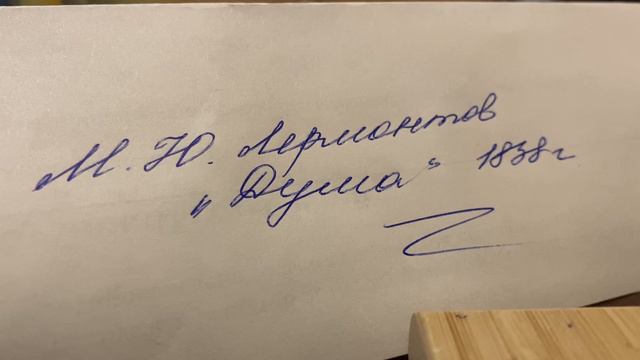 М. Ю. Лермонтов
„Дума“ 1838г